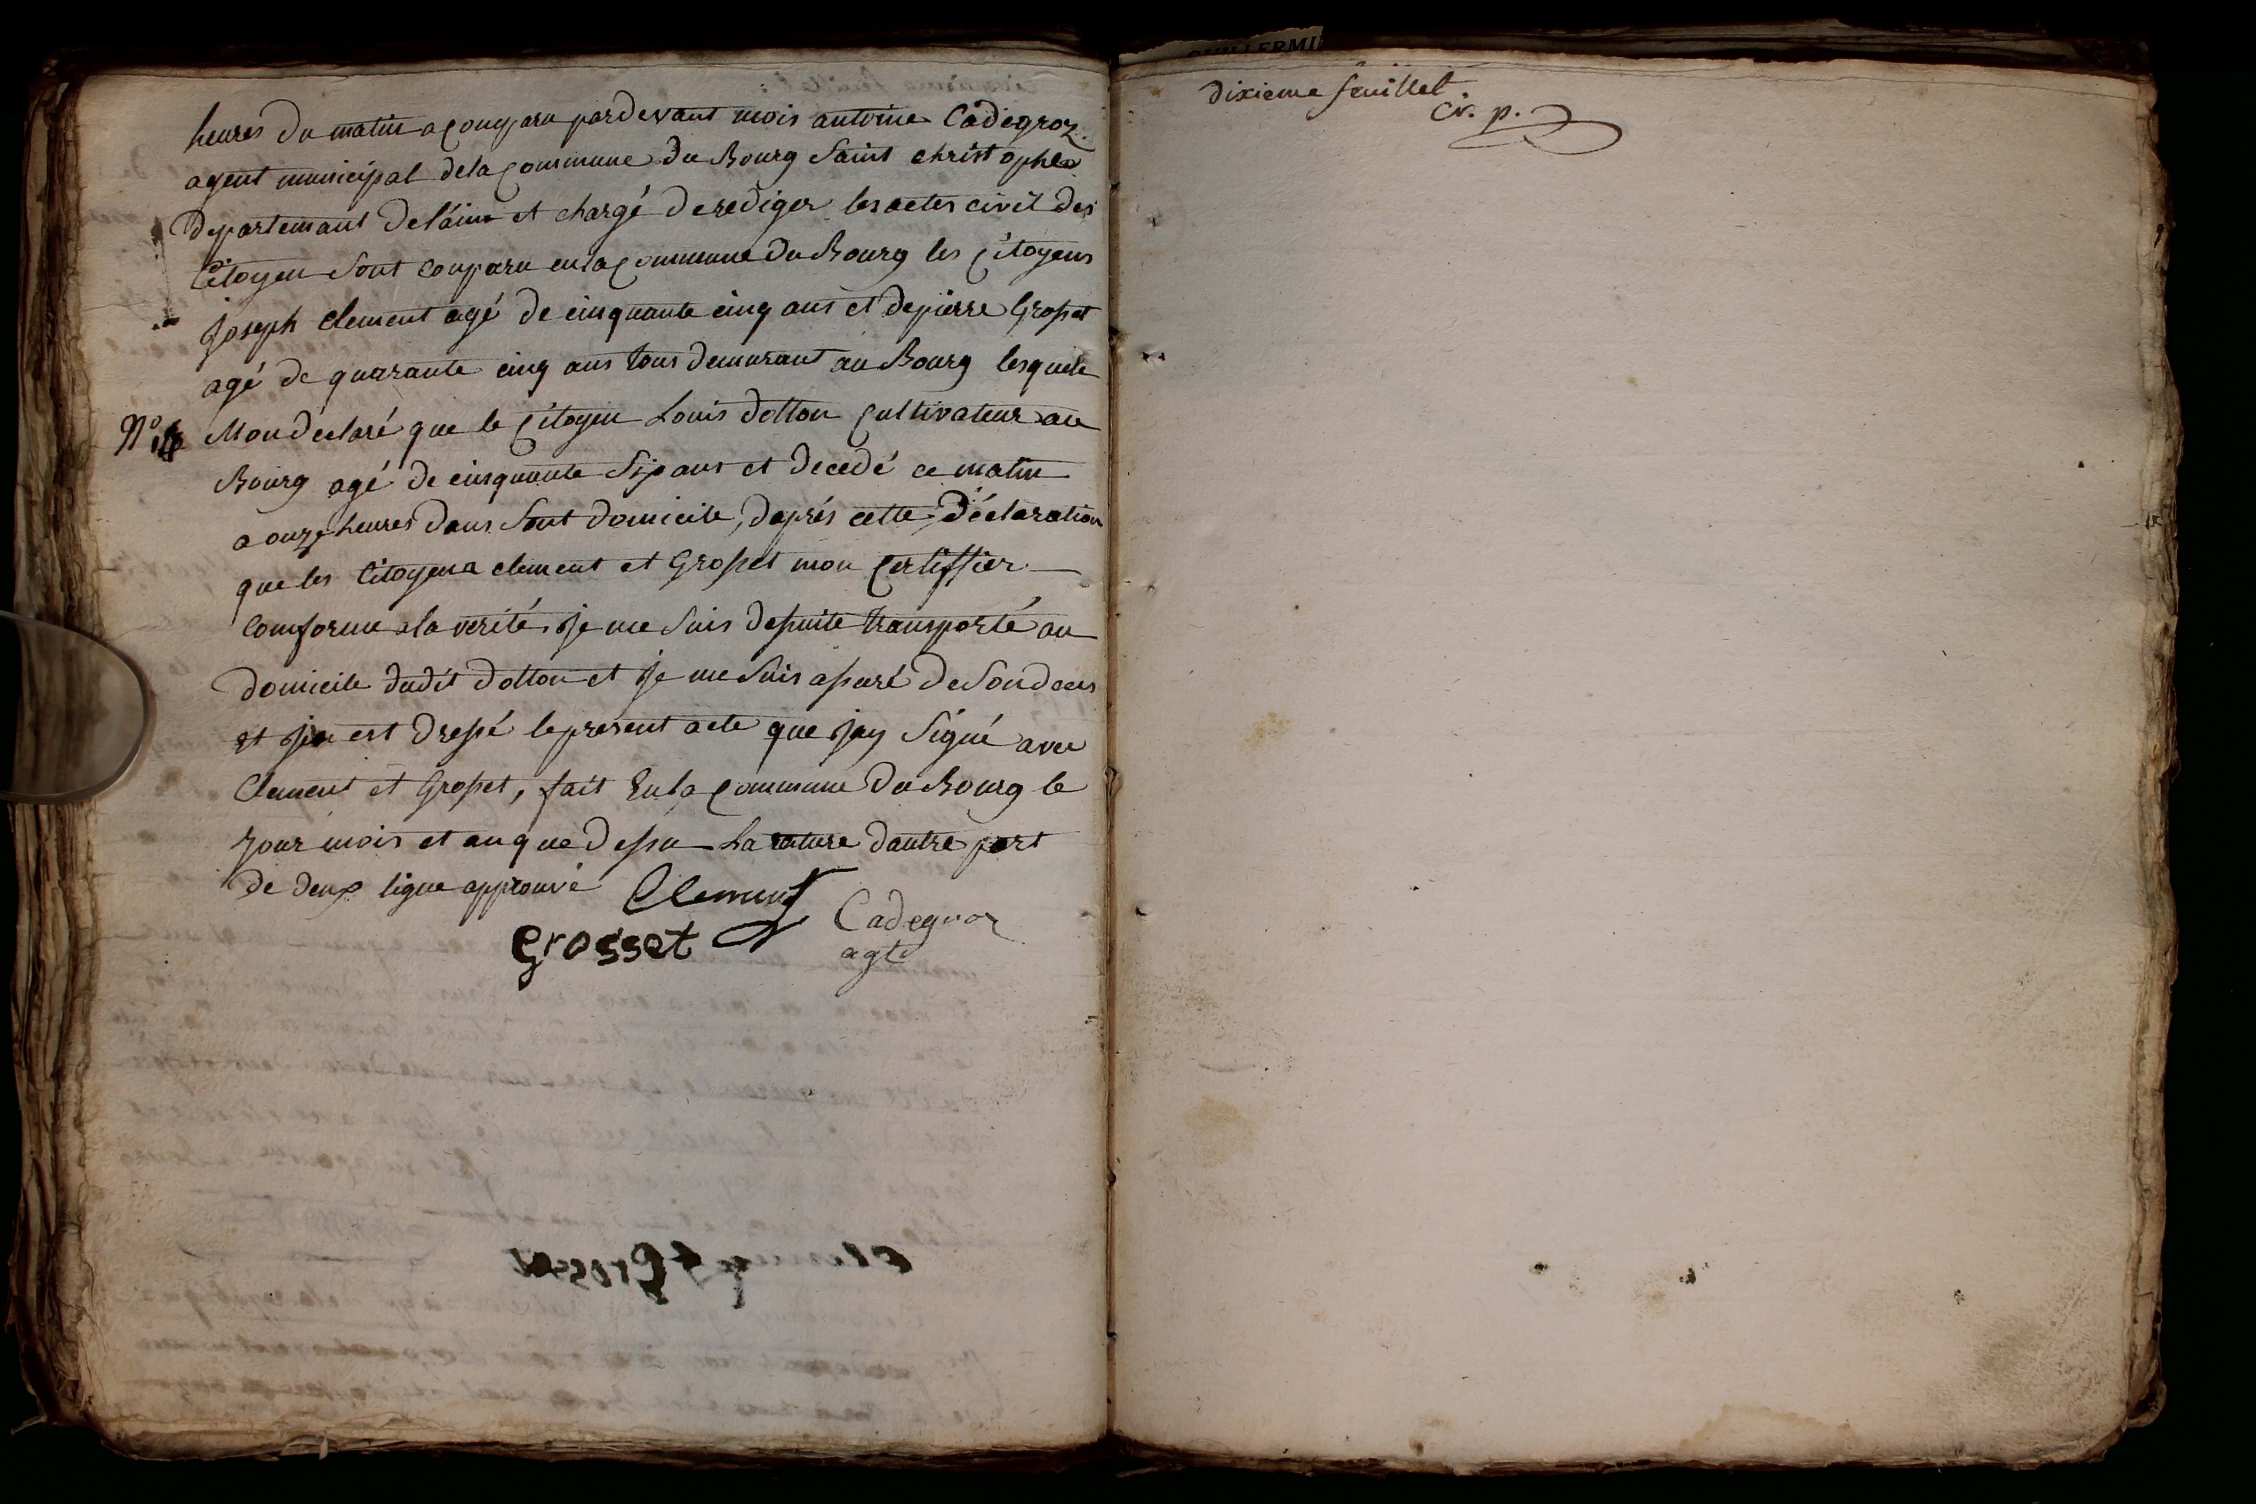 heures du matin a comparu pardevant mois antoine Cadegroz
agent municipal dela Commune du Bourg Saint christophe
Departemant Del'áin et chargé de rediger les actes civil des
Citoyen sont conparu en la Commune du Bourg les Citoyens
joseph clement agé de cinquante cinq ans et de pierre Grosset
agé de quarante cinq ans tous demurant au Bourg lesquele
Mon déclaré que le Citoyen Louis Dotton Cultivateur au
Bourg agé de cinquante Six ans et decedé ce matin
a onze heures dans sont domicile, daprés cette déclaration
que les Citoyens clement et Grosset mon Certiffier
Comforme a la verité, je me suis desuite transporté au
domicile dudit Dotton et je me suis assuré de son deces
et jen est dressé le present acte que jay Signé avec
Clement et Grosset, fait En la Commune du Bourg le
jour mois et an que dessu La rature dautre part
de deux ligne approuvé
Clement
Grosset
Cadegroz
agt
N°
dixieme feuillet
Cr. p.